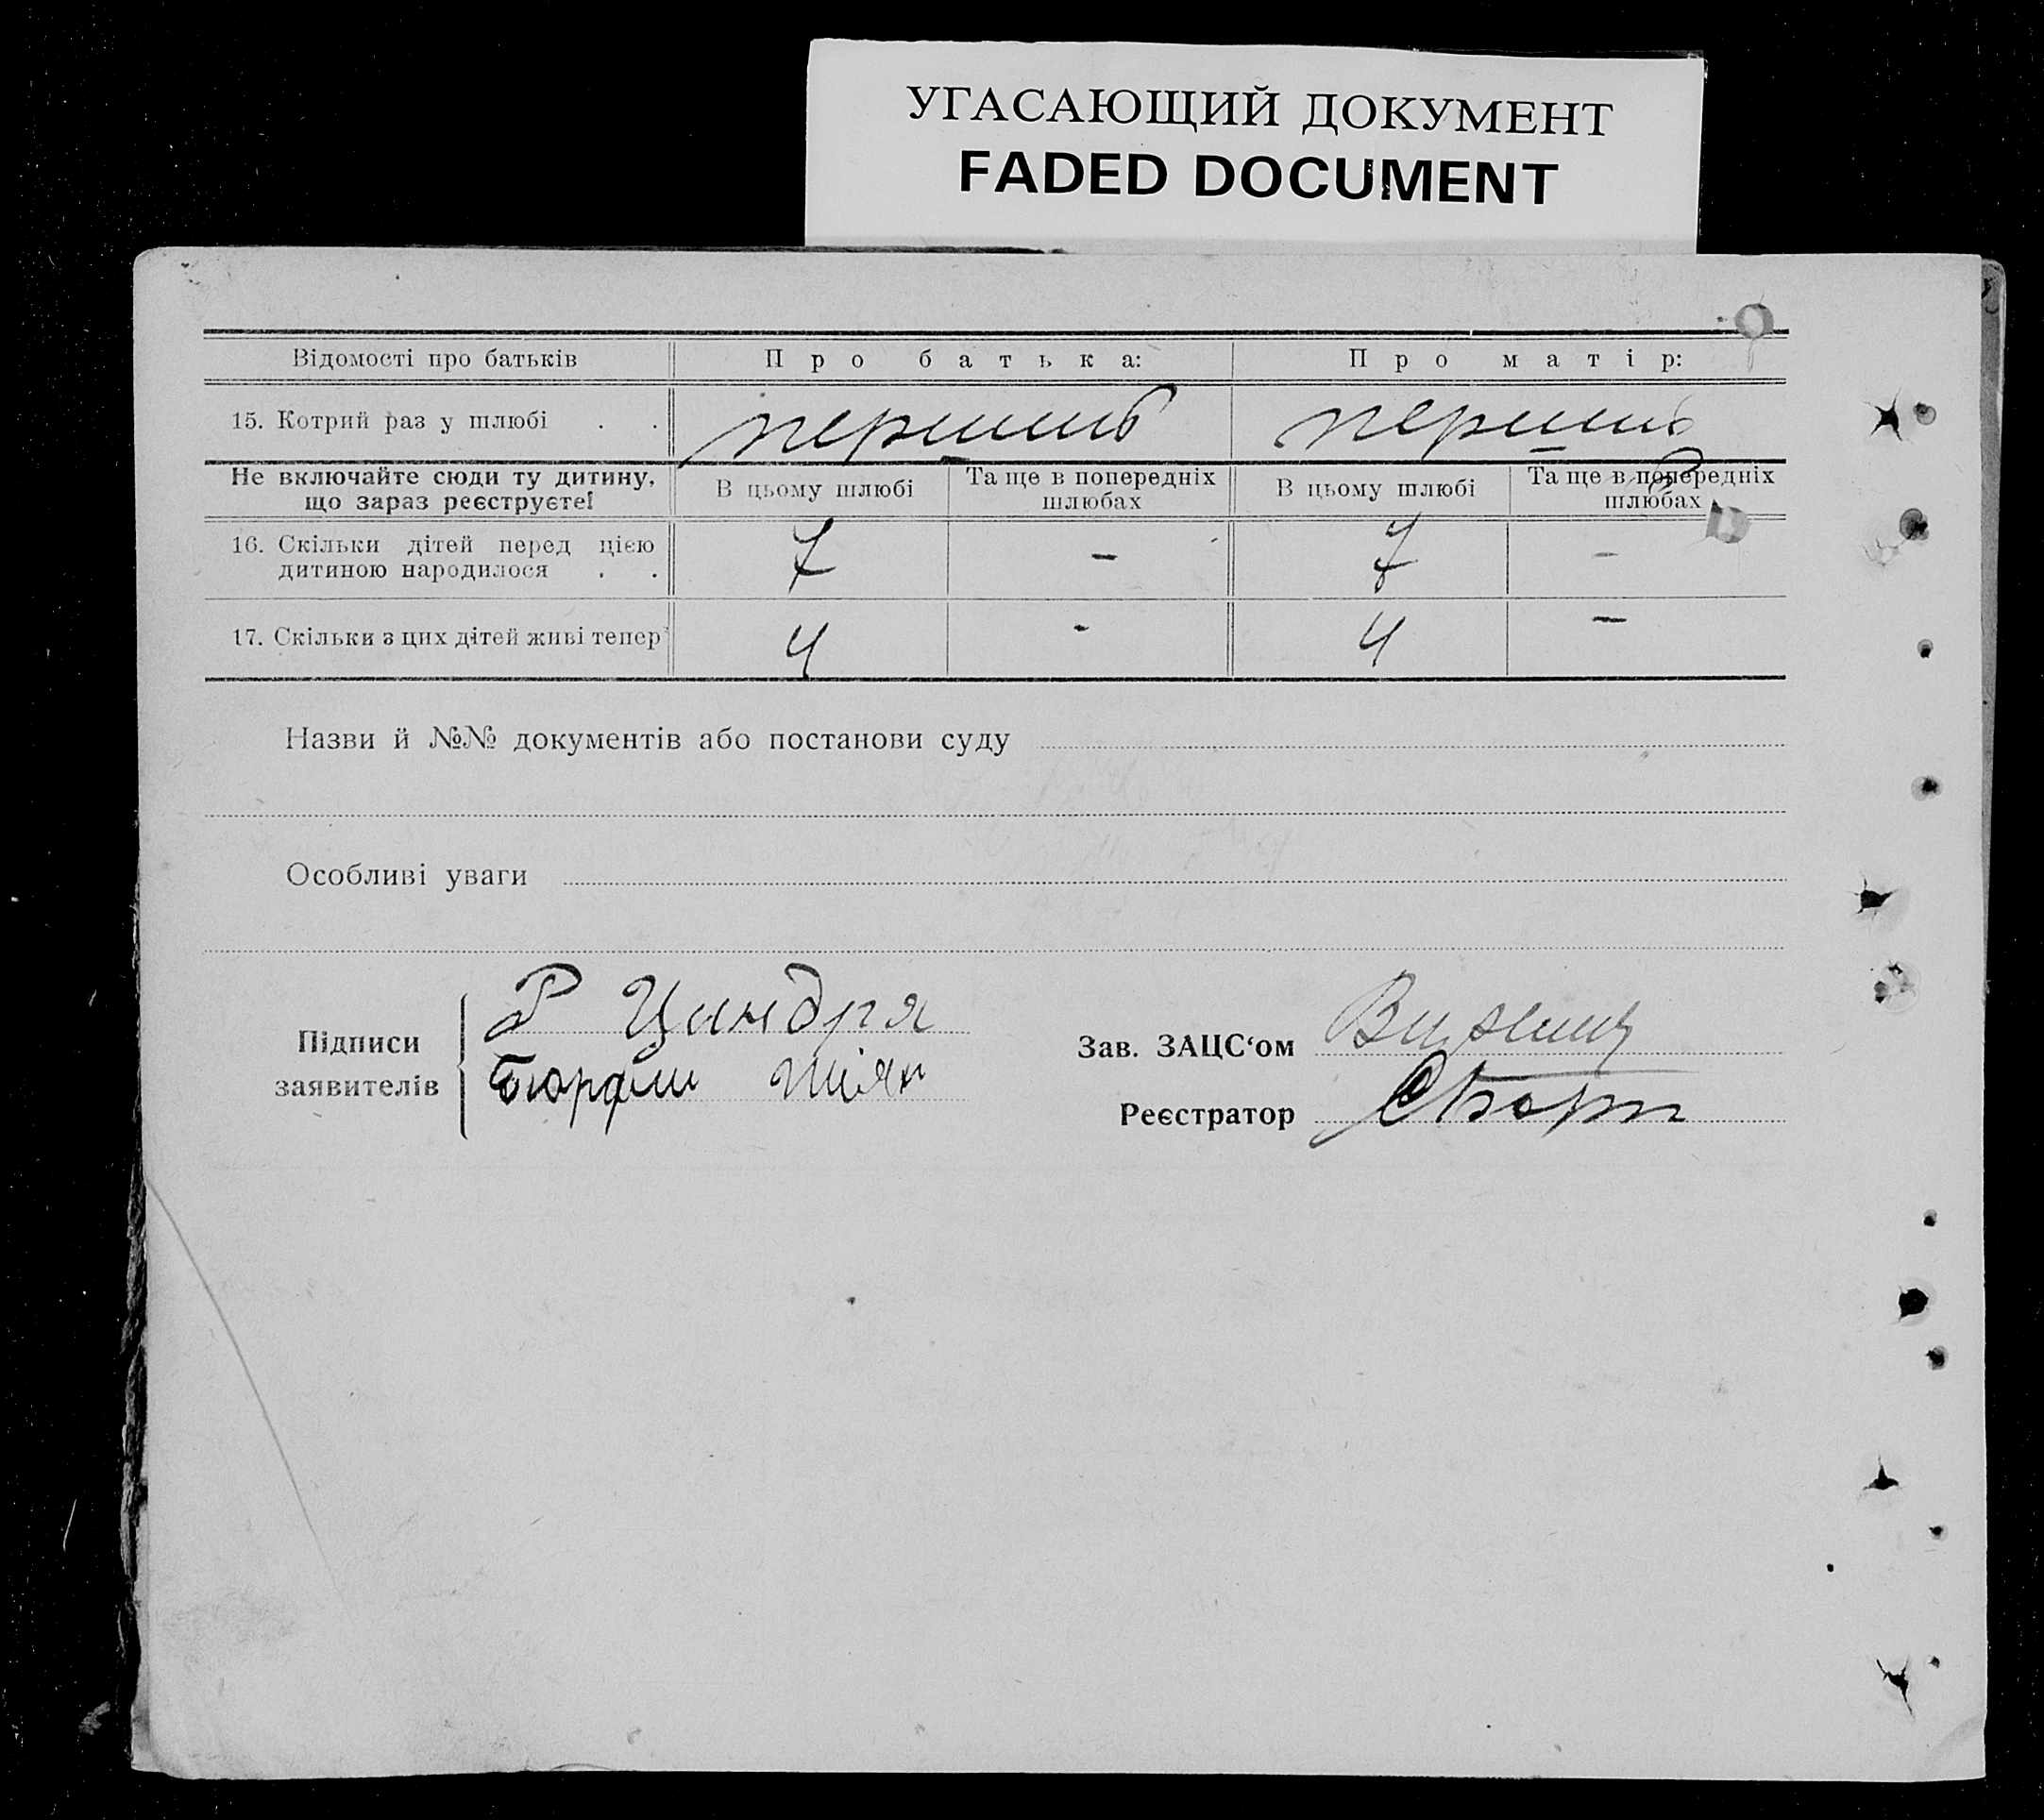 УГАСАЮЩИЙ ДОКУМЕНТ
FADED DOCUMENT
Відомості про батьків Про батька: Про матір:
15. Котрий раз у шлюбі . . перший перший
Не включайте сюди ту дитину, що зараз реєструєте! В цьому шлюбі Та ще в попередніх шлюбах В цьому шлюбі Та ще в попередніх шлюбах
16. Скільки дітей перед цією
дитиною народилося . . 7 - 7 -
17. Скільки з цих дітей живі тепер 4 - 4 -
Назви й №№ документів або постанови суду
Особливі уваги
Підписи
заявителів
Р Циндря
Зав. ЗАЦС‘ом
Реєстратор